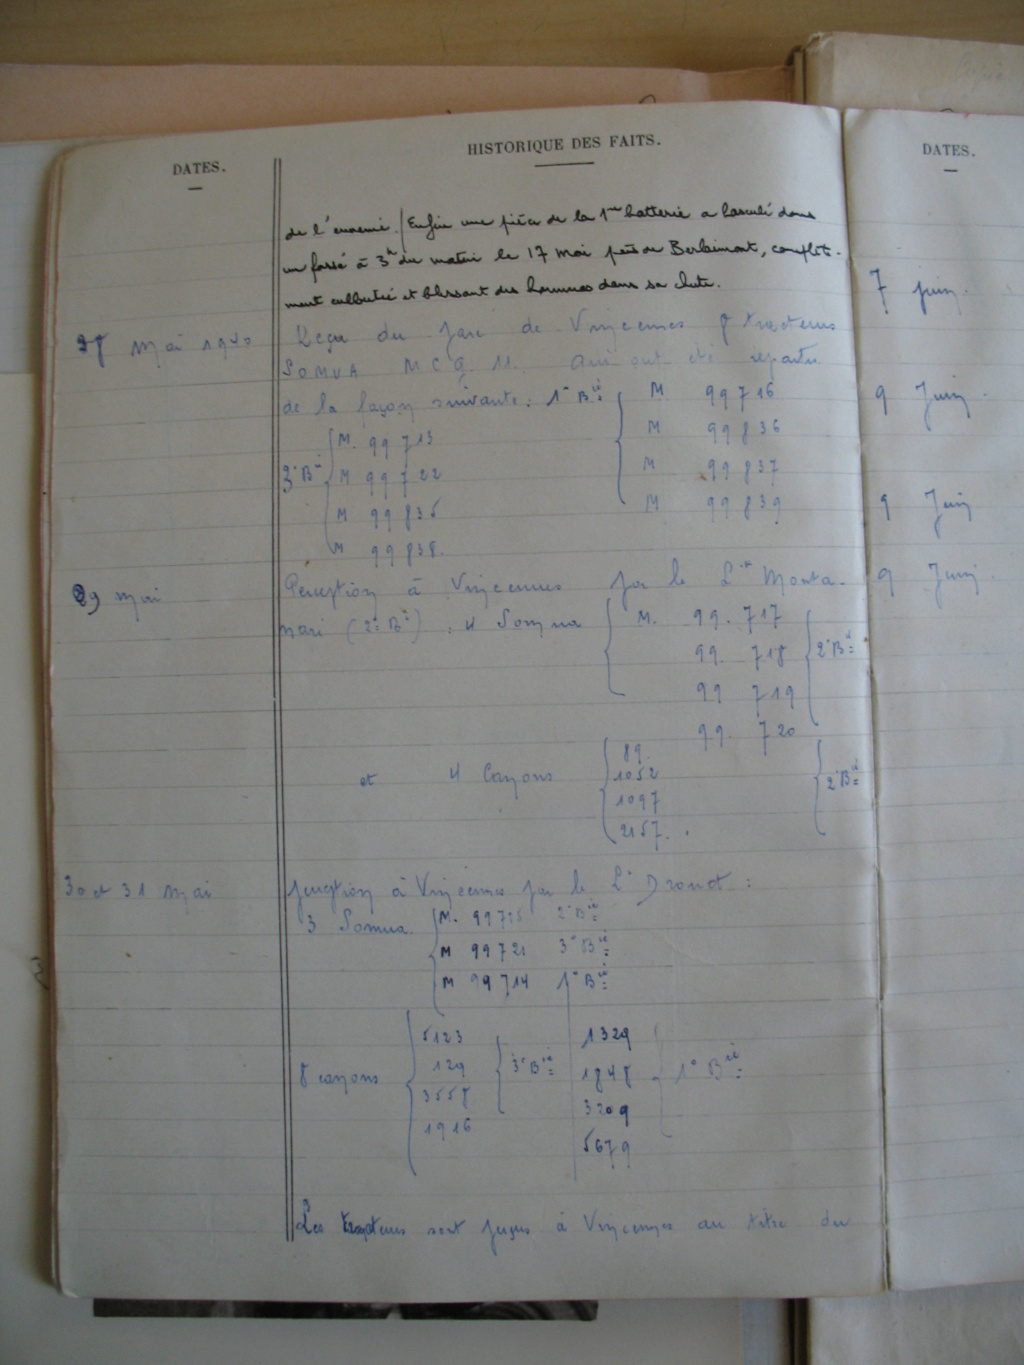 DATES.
HISTORIQUE DES FAITS.
DATES.
de l'ennemi. / Enfin une pièce de la 1re batterie a basculé dans
un fossé à 3h du matin le 17 mai près de Berlaimont, complète-
ment culbutée et blessant des hommes dans sa chute.
28 mai 1940 Reçu du parc de Vincennes 8 tracteurs
SOMUA M C G. 11. qui ont été répartis
de la façon suivante: 1° Bie M 99 716
M 99 836
M 99 837
M 99 839
3° Bie M. 99 713
M 99 722
M 99 835
M 99 838.
29 mai Perception à Vincennes par le Lt Monta-
nari (2° Bie) : 4 Somua M. 99. 717
99. 718 2° Bie
99 719
99. 720
et 4 Canons 89.
1052 2° Bie
1097
2157.
30 et 31 mai perception à Vincennes par le Lt Drouot :
3 Somua. M. 99715 2° Bie
M 99721 3° Bie
M 99714 1° Bie
8 canons 5123 1329
129 3° Bie 1848 1° Bie
3558 3209
1916 5679
Les tracteurs sont perçus à Vincennes au titre du
7 juin.
9 Juin
9 Juin
9 Juin.